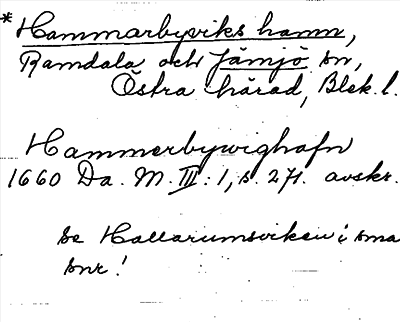 *Hammarbyviks hamn,
Ramdala och Jämjö sn,
Östra härad, Blek. l.
Hammerbywighafn
1660 Da. M. III: 1, s. 271. avskr.
Se Hallarumsviken i sma
snr!